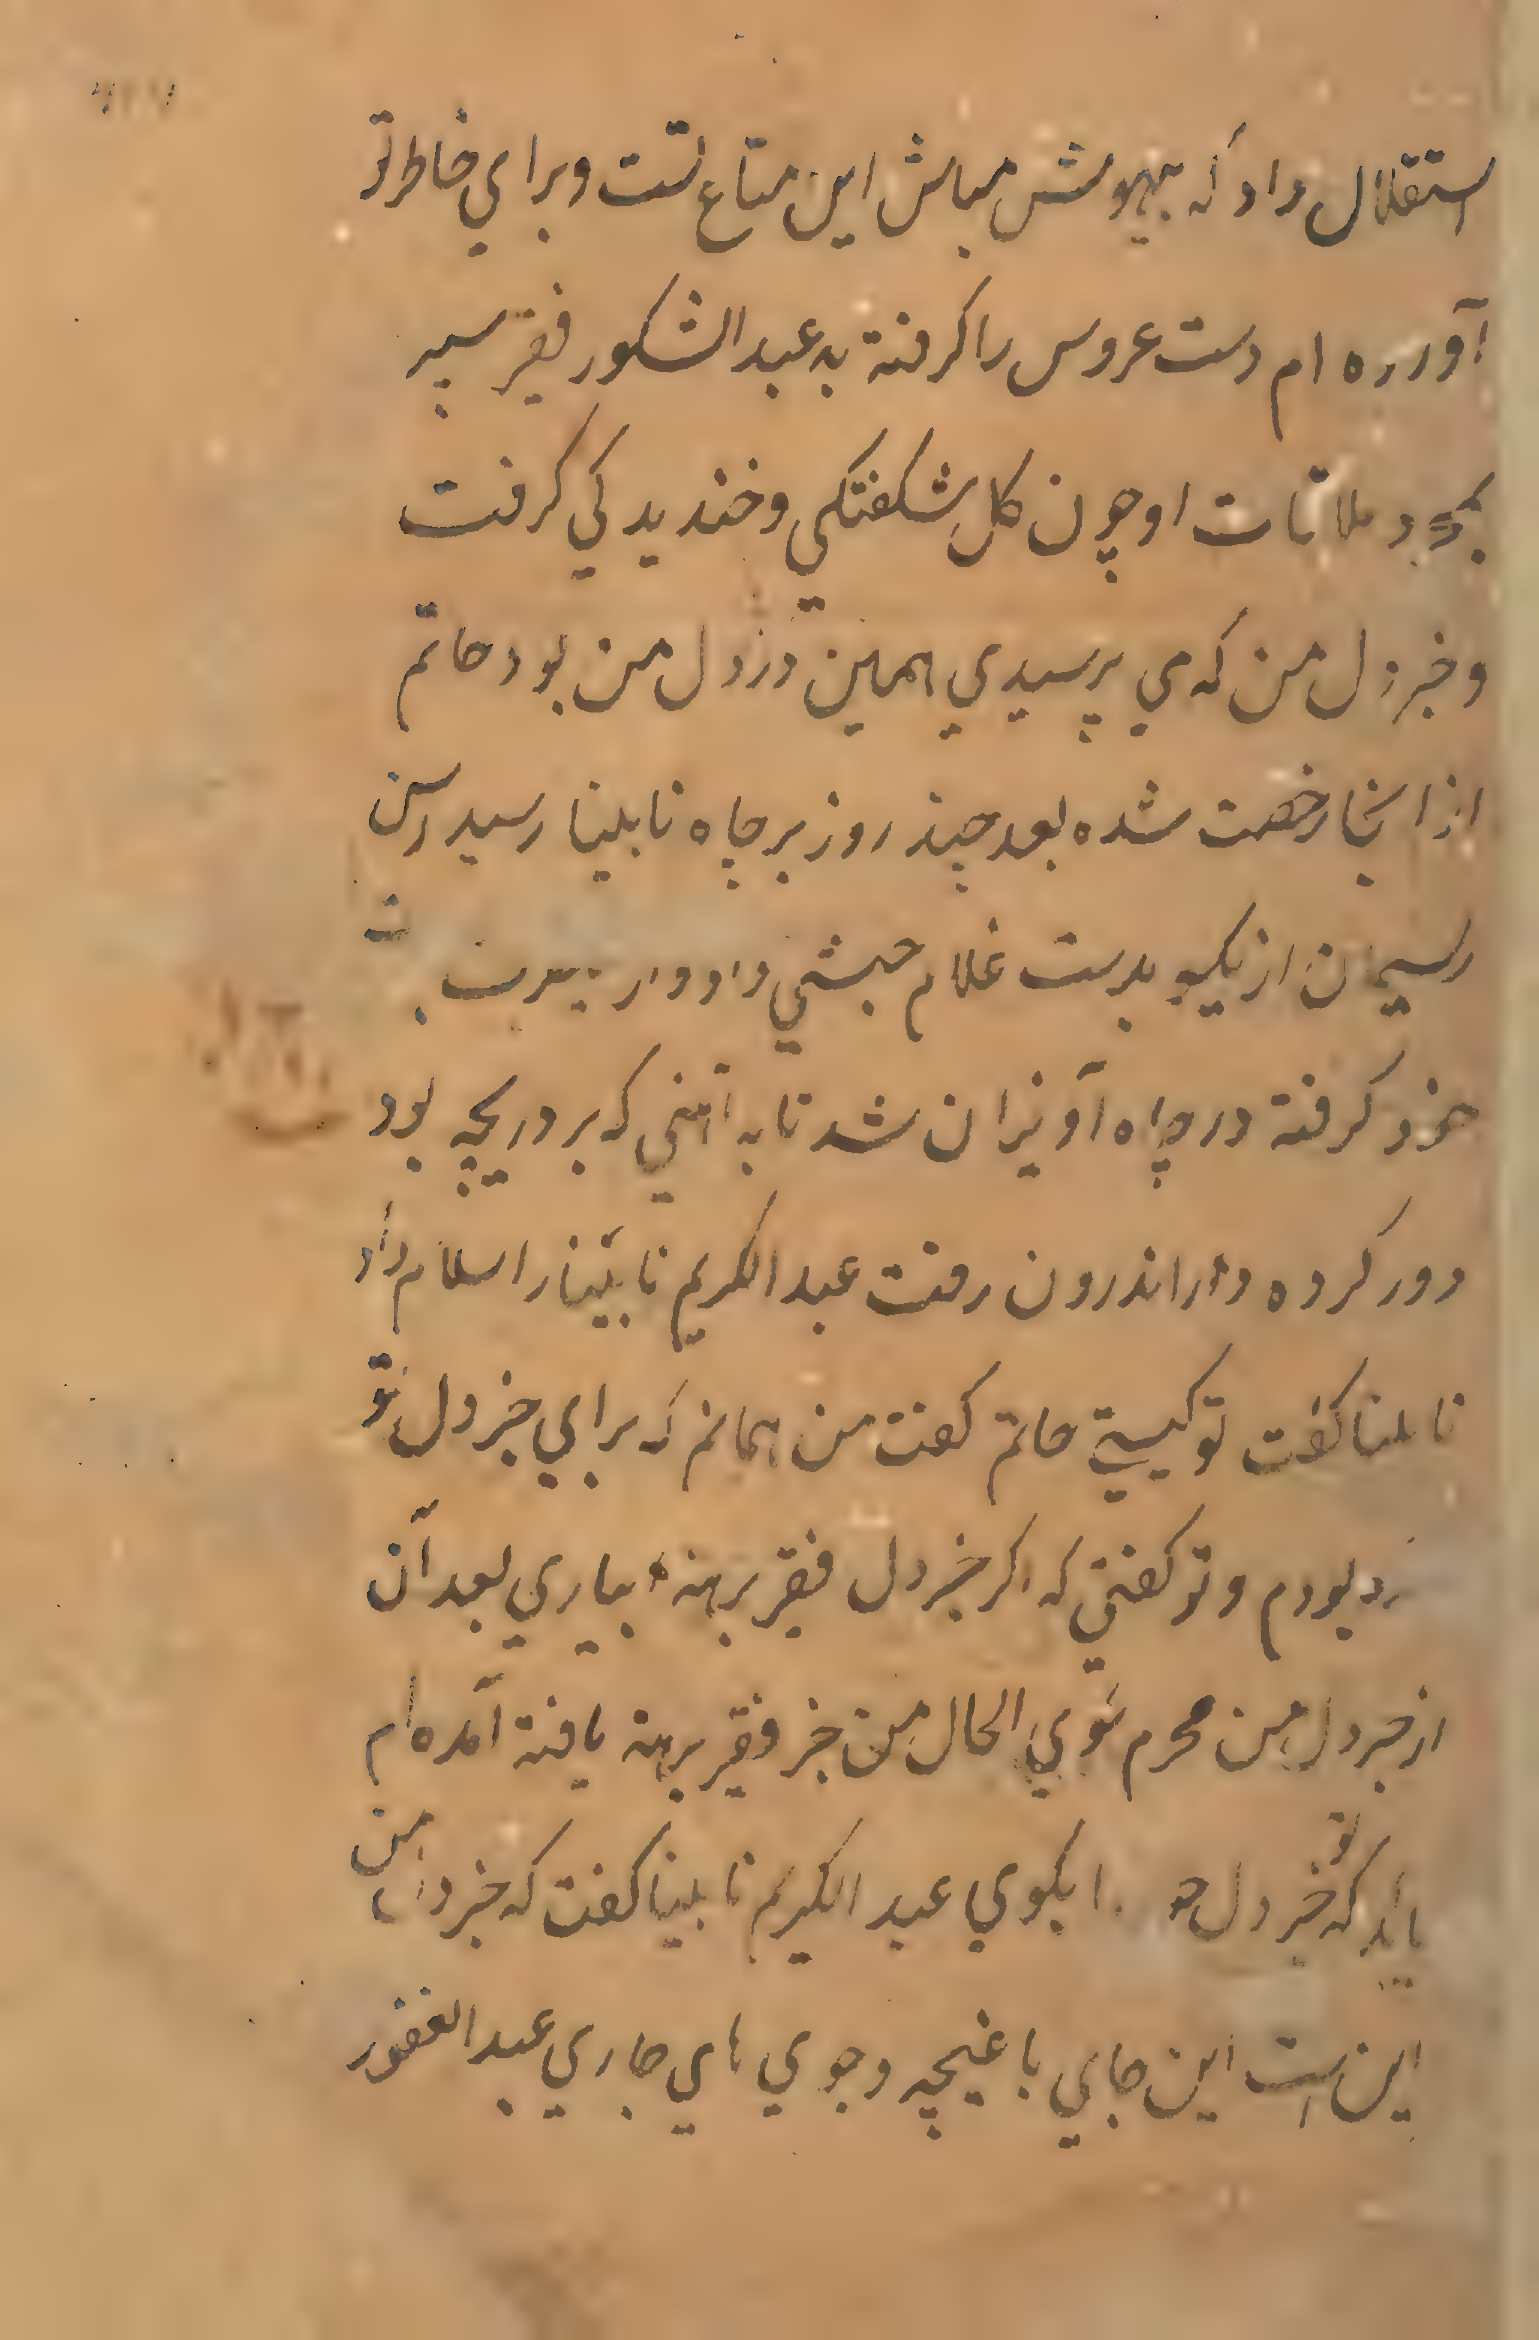 استقلال داد که بیهوش مباش این متاع تست و برای خاطر تو
آورده ام دست عروس را گرفته به عبد الشکور فقیر سپر
بمجرد ملاقات او چون کل شکفتکی و خندیدکی کرفت
و خبر دل من که می پرسیدی همین درد دل من بود حاتم
از انجا رخصت شده بعد چند روز بر چاه نابینا رسید رسن
ریسمان از یکسو بدست غلام حبشی داد و بدست
خود کرفته در چاه آویزان شد تا به آهنی که بر دریچه بود
دور کرده اندرون رفت عبد الکریم نابینا را سلام داد
نابینا کفت تو کیستی حاتم کفت من همانم که برای خبر دل تو
بودم و تو کفتی که اکر خبر دل فقیر برهنه بیاری بعد آن
از خبر دل من محرم شوی الحال من خبر فقیر برهنه یافته آمده ام
باید که تو خبر دل بکوی عبد الکریم نابینا کفت که خبر دل من
این است این جای باغیچه و جوی های جاری عبد الغفور